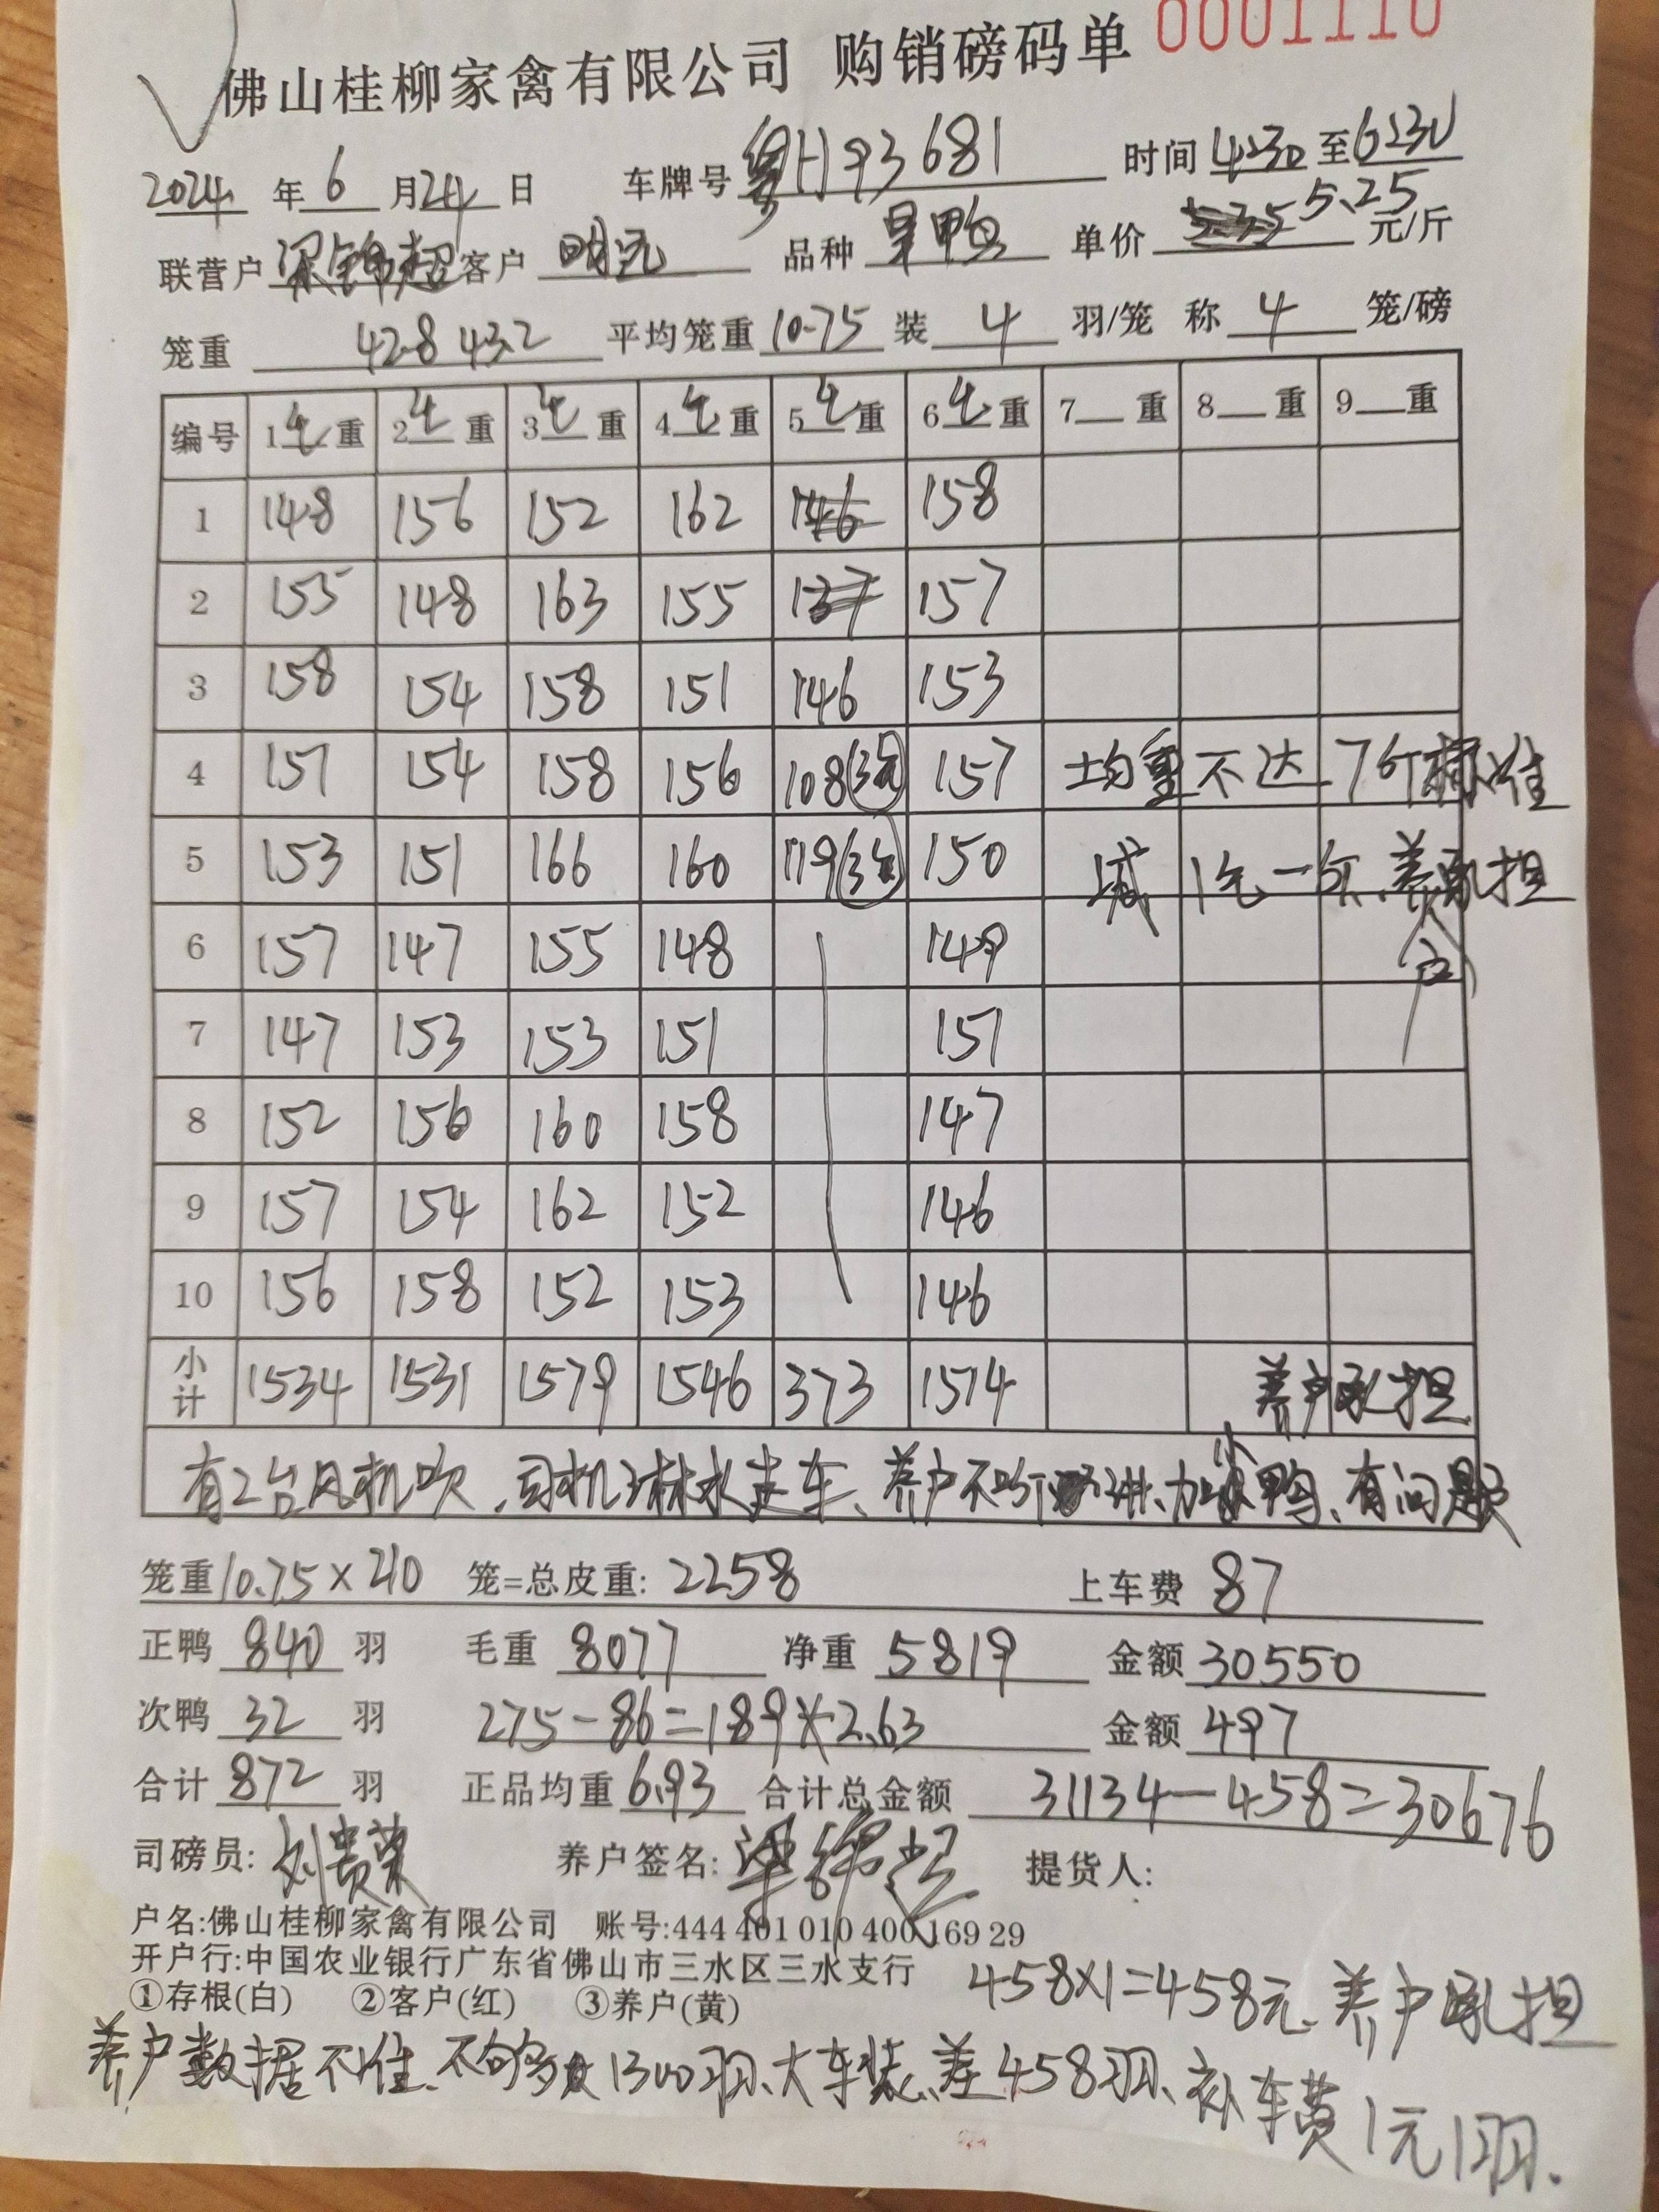 佛山桂柳家禽有限公司 购销磅码单 0001110
2024 年 6 月 24 日 车牌号 粤H93681 时间 4:30 至 6:30
联营户 梁锦超 客户 明记 品种 旱鸭 单价 5.25 元/斤
笼重 42.8 43.2 平均笼重 10.75 装 4 羽/笼 称 4 笼/磅
编号 1 生 重 2 生 重 3 生 重 4 生 重 5 生 重 6 生 重 7 重 8 重 9 重
1 148 156 152 162 146 158
2 155 148 163 155 137 157
3 158 154 158 151 146 153
4 151 154 158 156 108(3元) 157 均重不达7斤标准
5 153 151 166 160 119(3生) 150 减1毛一斤、养户承担
6 157 147 155 148 149
7 147 153 153 151 151
8 152 156 160 158 147
9 157 154 162 152 146
10 156 158 152 153 146
小计 1534 1531 1579 1546 373 1514 养户承担
有2台风机吹、司机淋水走车、养户不听讲、加水鸭、有问题
笼重 10.75×210 笼=总皮重: 2258 上车费 87
正鸭 840 羽 毛重 8077 净重 5819 金额 30550
次鸭 32 羽 275-86=189×2.63 金额 497
合计 872 羽 正品均重 6.93 合计总金额 31134-458=30676
司磅员: 刘贵荣 养户签名: 梁锦超 提货人:
户名:佛山桂柳家禽有限公司 账号:444 401 010 400 169 29
开户行:中国农业银行广东省佛山市三水区三水支行
①存根(白) ②客户(红) ③养户(黄) 458×1=458元、养户承担
养户数据不准、不够 1300羽、大车装、差458羽、补车费1元1羽.